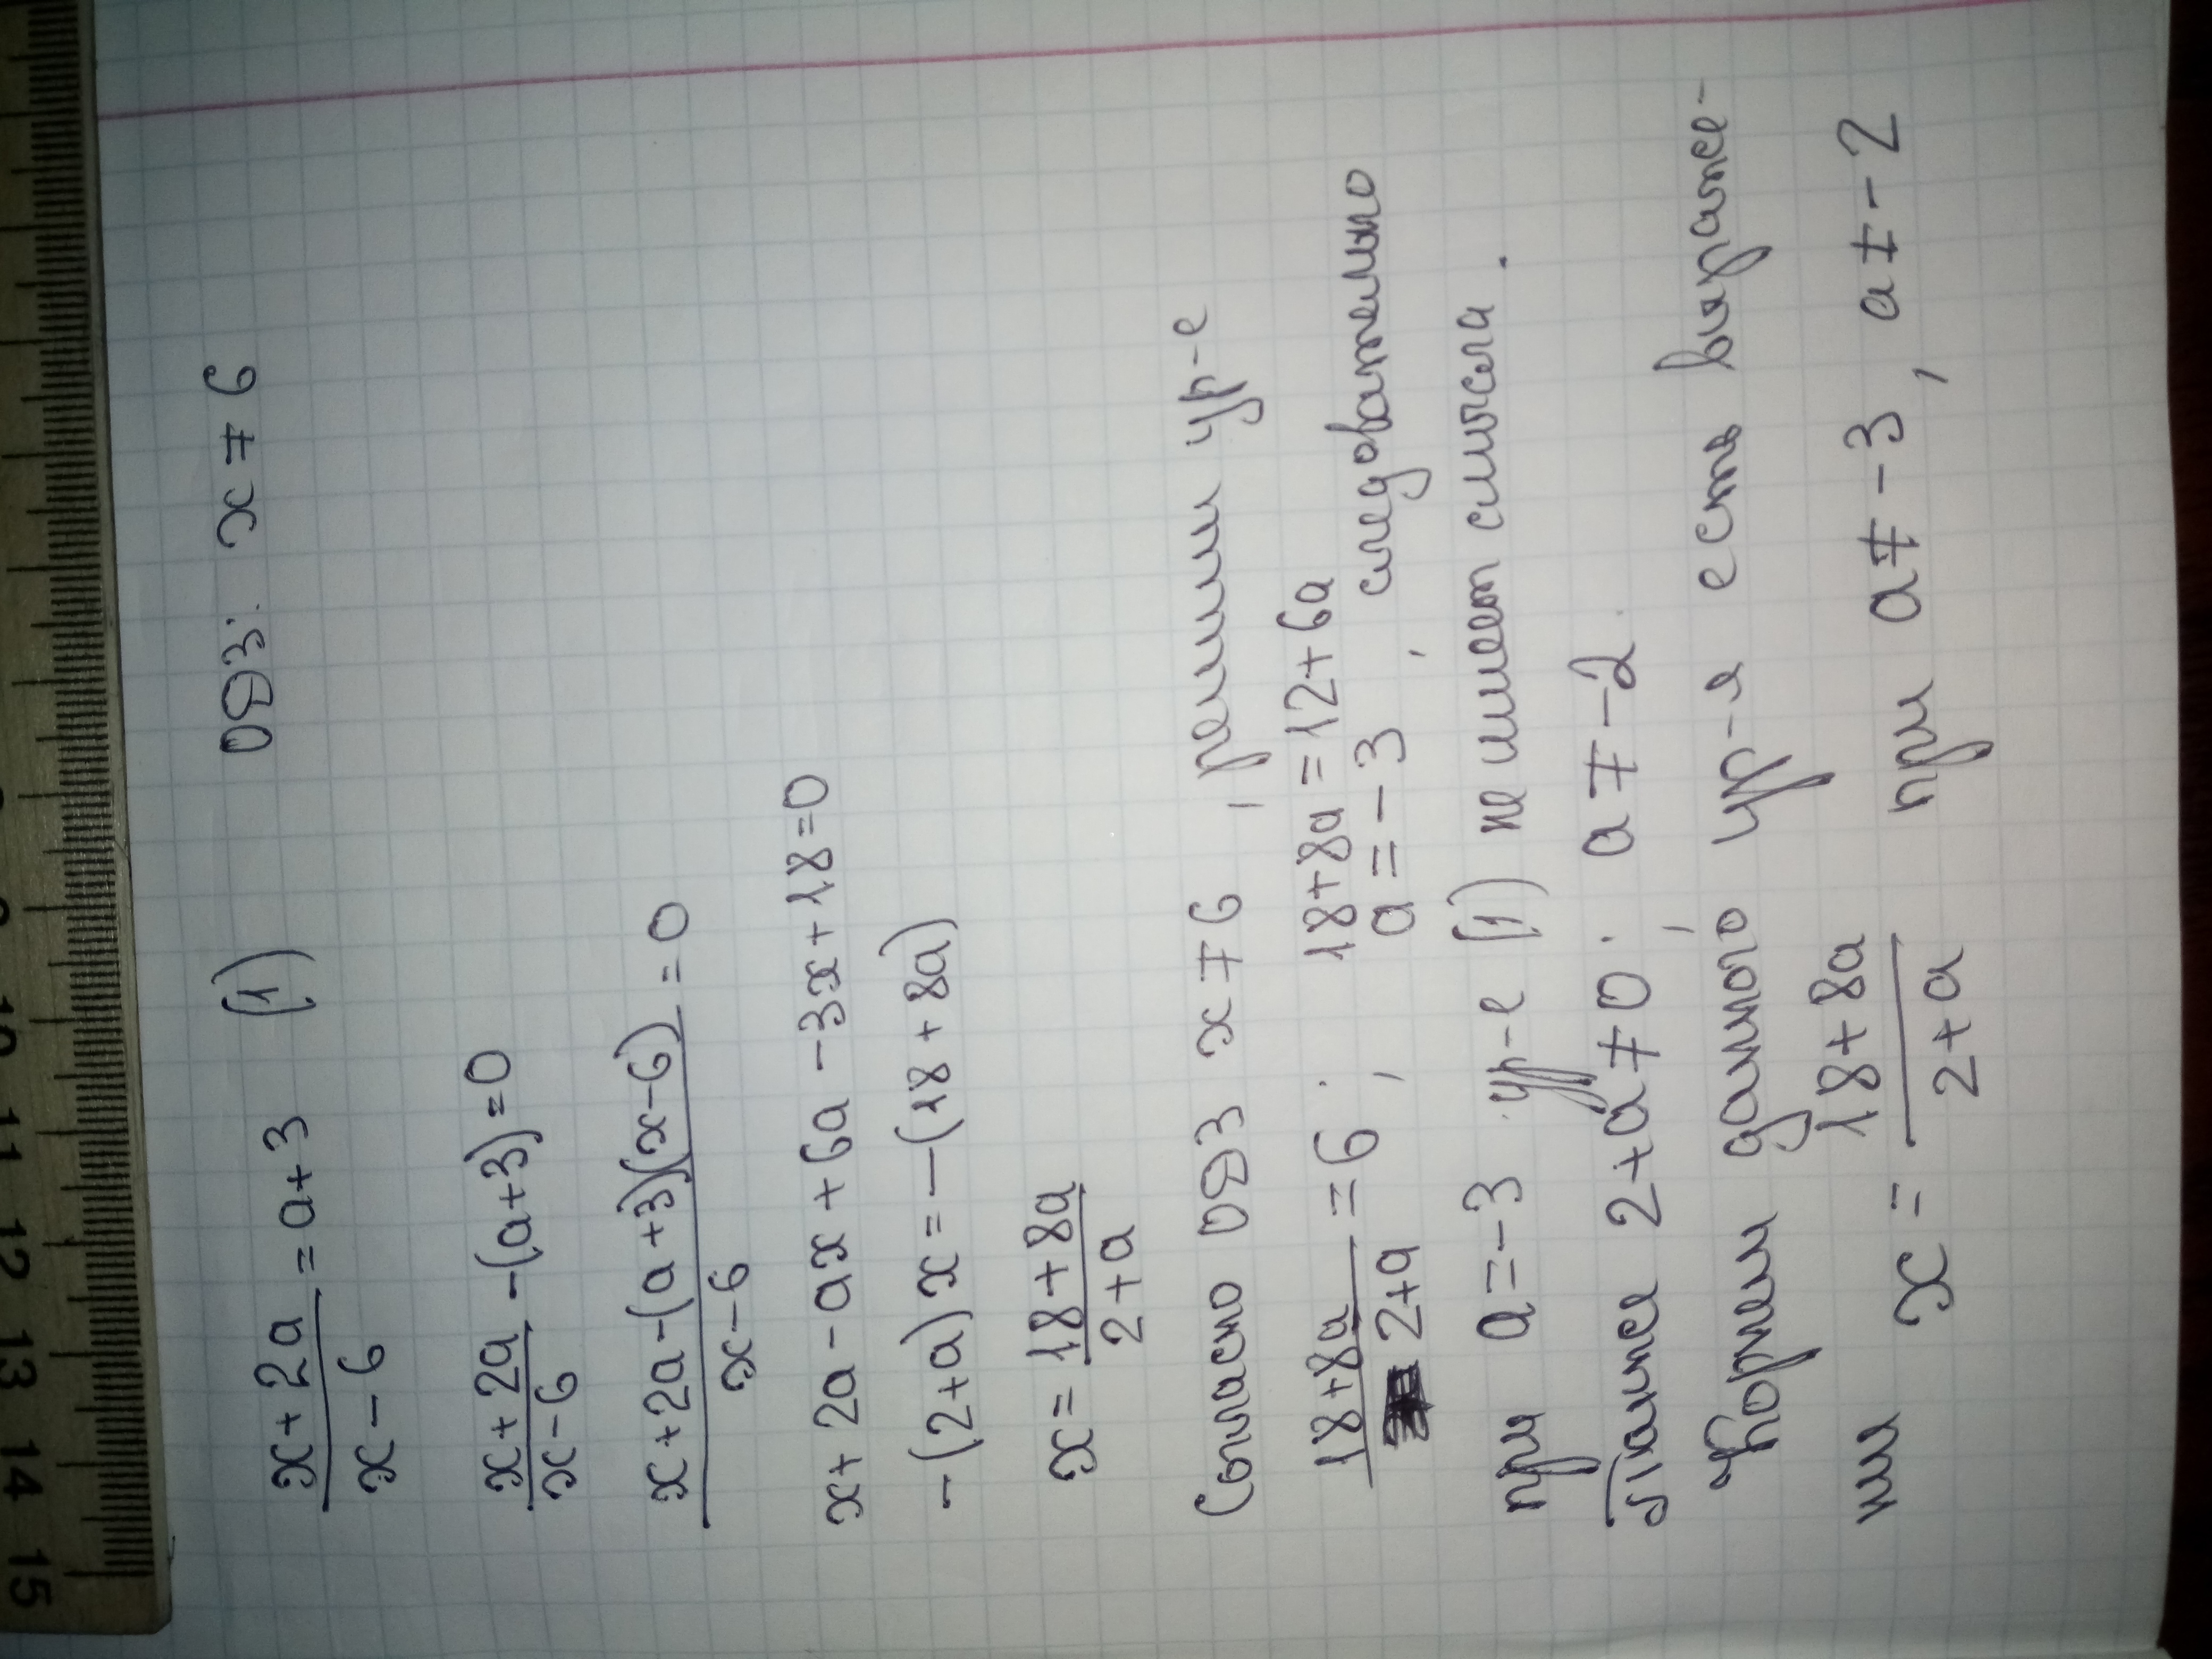 15 14 13 12 11 10 9
(x+2a)/(x-6) = a+3 (1) ОДЗ: x ≠ 6
(x+2a)/(x-6) -(a+3)=0
(x+2a-(a+3)(x-6))/(x-6) = 0
x+2a-ax+6a-3x+18=0
-(2+a)x=-(18+8a)
x= (18+8a)/(2+a)
Согласно ОДЗ x ≠ 6 , решим ур-е
(18+8a)/(2+a) = 6 ; 18+8a=12+6a
a=-3 , следовательно
при a=-3 ур-е (1) не имеет смысла.
Также 2+a≠0; a≠-2.
Корнем данного ур-я есть выраже-
ни x= (18+8a)/(2+a) при a≠-3, a≠-2